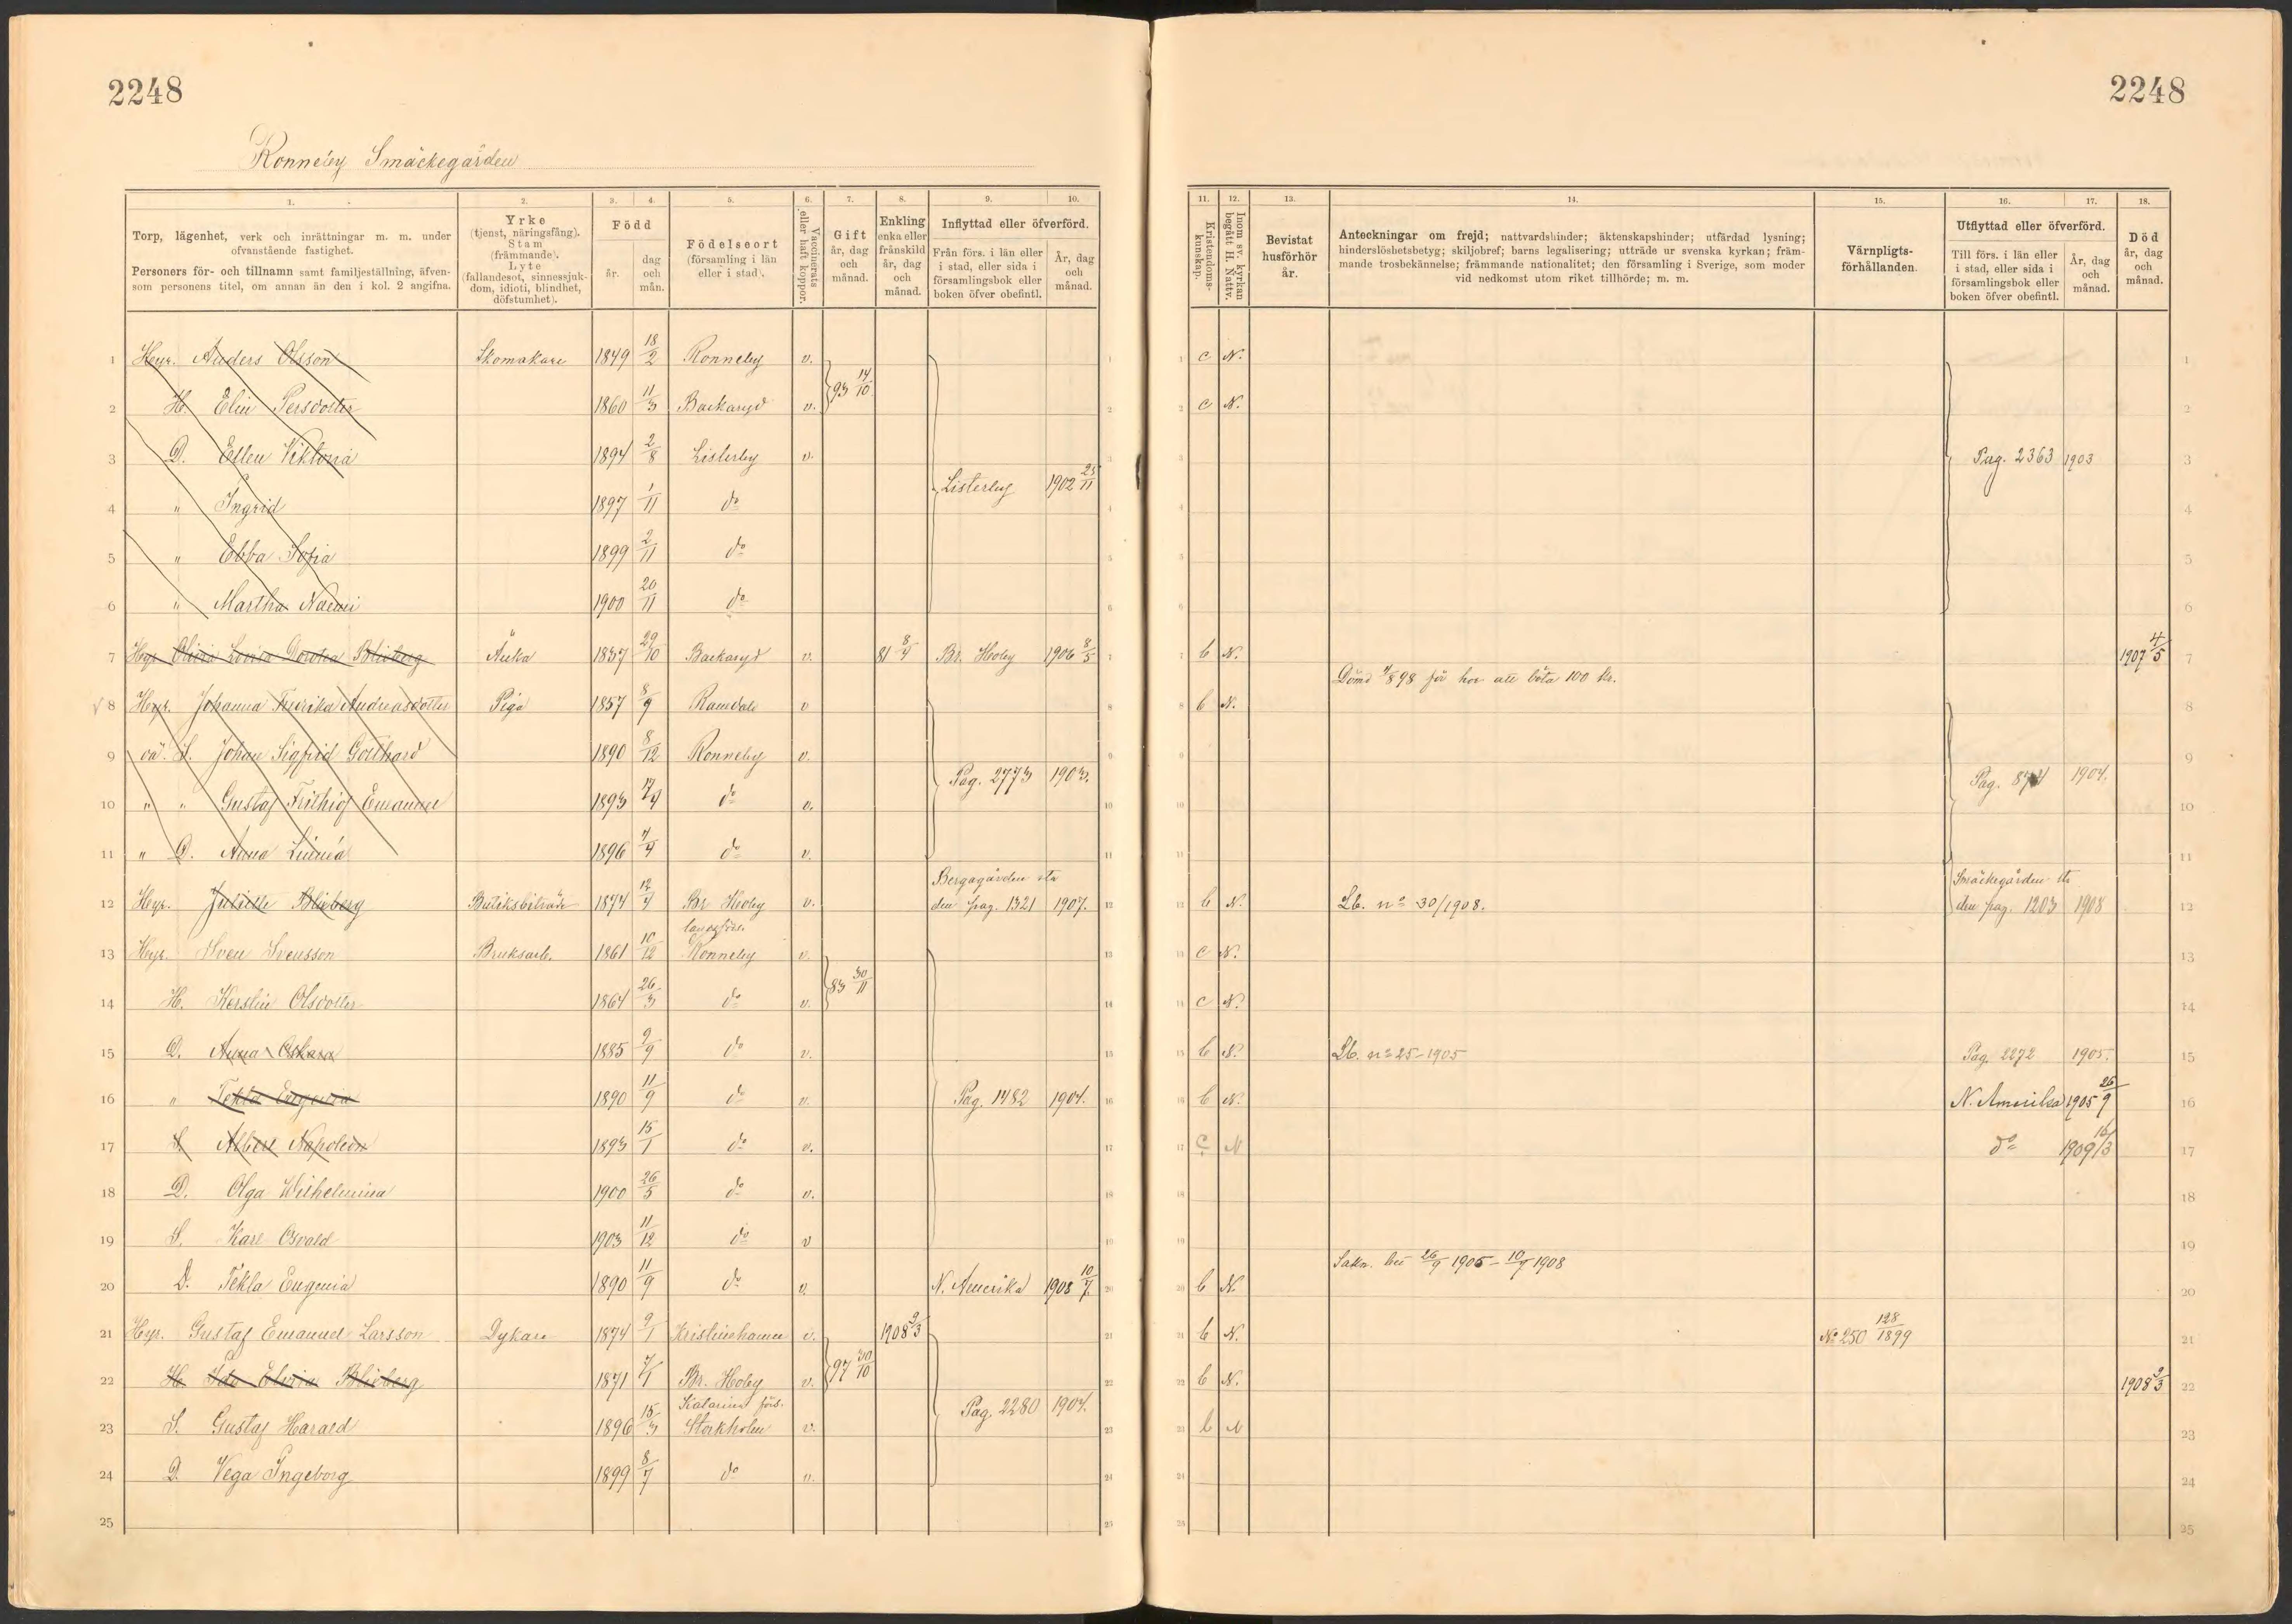 2248
2248
Ronneby Smäckegården
1. 2. 3. 4. 5. 6. 7. 8. 9. 10.
Torp, lägenhet, verk och inrättningar m. m. under ofvanstående fastighet.
Personers för- och tillnamn samt familjeställning, äfvensom personens titel, om annan än den i kol. 2 angifna.
Yrke (tjenst, näringsfång). Stam (främmande). Lyte (fallandesot, sinnessjukdom, idioti, blindhet, döfstumhet).
Född
år.
dag och mån.
Födelseort (församling i län eller i stad).
Vaccinerats eller haft koppor.
Gift år, dag och månad.
Enkling enka eller frånskild år, dag och månad.
Inflyttad eller öfverförd.
Från förs. i län eller i stad, eller sida i församlingsbok eller boken öfver obefintl.
År, dag och månad.
11. 12. 13. 14. 15. 16. 17. 18.
Kristendomskunskap.
Inom sv. kyrkan begått H. Nattv.
Bevistat husförhör år.
Anteckningar om frejd; nattvardshinder; äktenskapshinder; utfärdad lysning; hinderslöshetsbetyg; skiljobref; barns legalisering; utträde ur svenska kyrkan; främmande trosbekännelse; främmande nationalitet; den församling i Sverige, som moder vid nedkomst utom riket tillhörde; m. m.
Värnpligtsförhållanden.
Utflyttad eller öfverförd.
Till förs. i län eller i stad, eller sida i församlingsbok eller boken öfver obefintl.
År, dag och månad.
Död år, dag och månad.
1 Hyr. Anders Olsson Skomakare 1849 18/2 Ronneby v. 93 14/10 C N.
2 H. Elin Persdotter 1860 11/3 Backaryd v. C N.
3 D. Ellen Viktoria 1894 2/8 Listerby v. Pag. 2363 1903
4 " Ingrid 1897 1/11 do Listerby 1902 25/11
5 " Ebba Sofia 1899 2/11 do
6 " Martha Naemi 1900 20/11 do
7 Hyr. Olivia Lovisa Dorothea Blieberg Änka 1837 29/10 Backaryd v. 81 8/4 Br. Hoby 1906 8/5 b N. 1907 4/5
Dömd 4/8 98 för hor att böta 100 kr.
8 Hyr. Johanna Fredrika Andreasdotter Piga 1857 8/9 Ramdala v b N.
9 oä. S. Johan Sigfrid Gotthard 1890 8/12 Ronneby v. Pag. 2773 1903. 1904.
10 " " Gustaf Frithiof Emanuel 1893 do v.
11 " D. Anna Linnéa 1896 do v.
Bergagården sta
Smäckegården sta
12 Hyr. Juliette Blieberg Butiksbiträde 1874 12/4 Br Hoby v. den pag. 1321 1907. b N. Lb. no 30/1908. den pag. 1203 1908
landsförs.
13 Hyr. Sven Svensson Bruksarb. 1861 10/12 Ronneby v. 83 30/11 C N.
14 H. Kerstin Olsdotter 1864 26/3 do v. C N.
15 D. Anna Oskara 1885 9/9 do v. b N. Lb. no 25-1905 Pag. 2272 1905.
16 " Tekla Eugenia 1890 11/9 do v. Pag. 1482 1904. b N. N. Amerika 1905 26/9
17 S. Albert Napoleon 1893 15/1 do v. C N do 1909 16/3
18 D. Olga Wilhelmina 1900 26/5 do v.
19 S. Karl Osvald 1903 11/12 do v
Sakn. bev 26/9 1905 - 10/7 1908
20 D. Tekla Eugenia 1890 11/9 do v. N. Amerika 1908 10/7 b N.
21 Hyr. Gustaf Emanuel Larsson Dykare 1874 9/1 Kristinehamn v. 97 30/10 1908 2/3 b N. No 250 128/1899
22 H. Ida Elvira Blieberg 1871 7/1 Br. Hoby v. b N. 1908 2/3
Katarina förs.
23 S. Gustaf Harald 1896 15/3 Stockholm v. Pag. 2280 1904. b N
24 D. Vega Ingeborg 1899 8/7 do v.
25